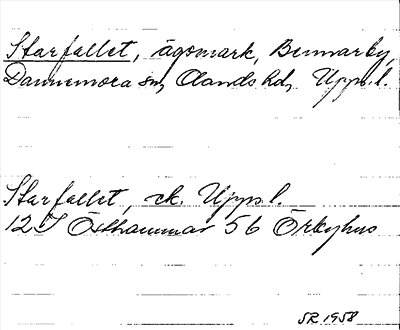 Starfallet, ägomark, Bennarby,
Dannemora sn, Olands hd, Uppl.
Starfallet, ek. Uppl.
12 I Östhammar 56 Örbyhus
SR 1958